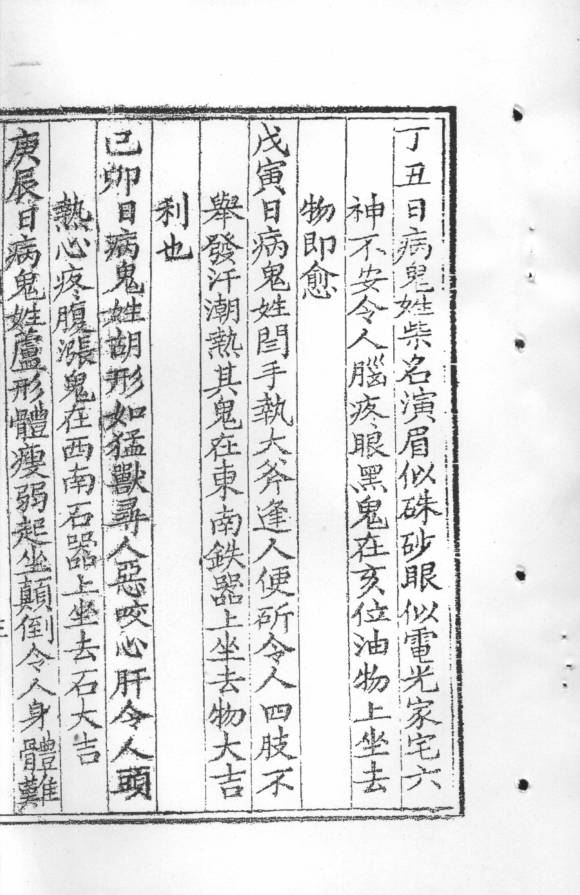 丁丑日病鬼姓柴名演眉似硃砂眼似電光家宅六
神不安令人腦疼眼黑鬼在亥位油物上坐去
物即愈
戊寅日病鬼姓閆手執大斧逢人便斫令人四肢不
舉發汗潮熱其鬼在東南鉄器上坐去物大吉
利也
己卯日病鬼姓胡形如猛獸尋人惡咬心肝令人頭
熱心疼腹漲鬼在西南石器上坐去石大吉
庚辰日病鬼姓蘆形體瘦弱起坐顛倒令人身體難